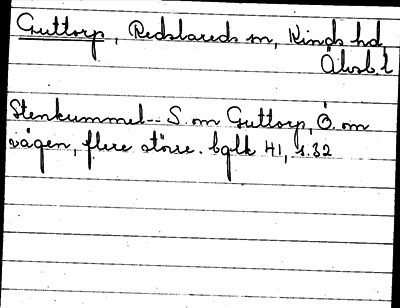 Guttorp, Redslareds sn, Kinds hd,
Älvsb. l
Stenkummel -- S. om Guttorp, Ö. om
vägen, flere större. bglk 41, s. 32